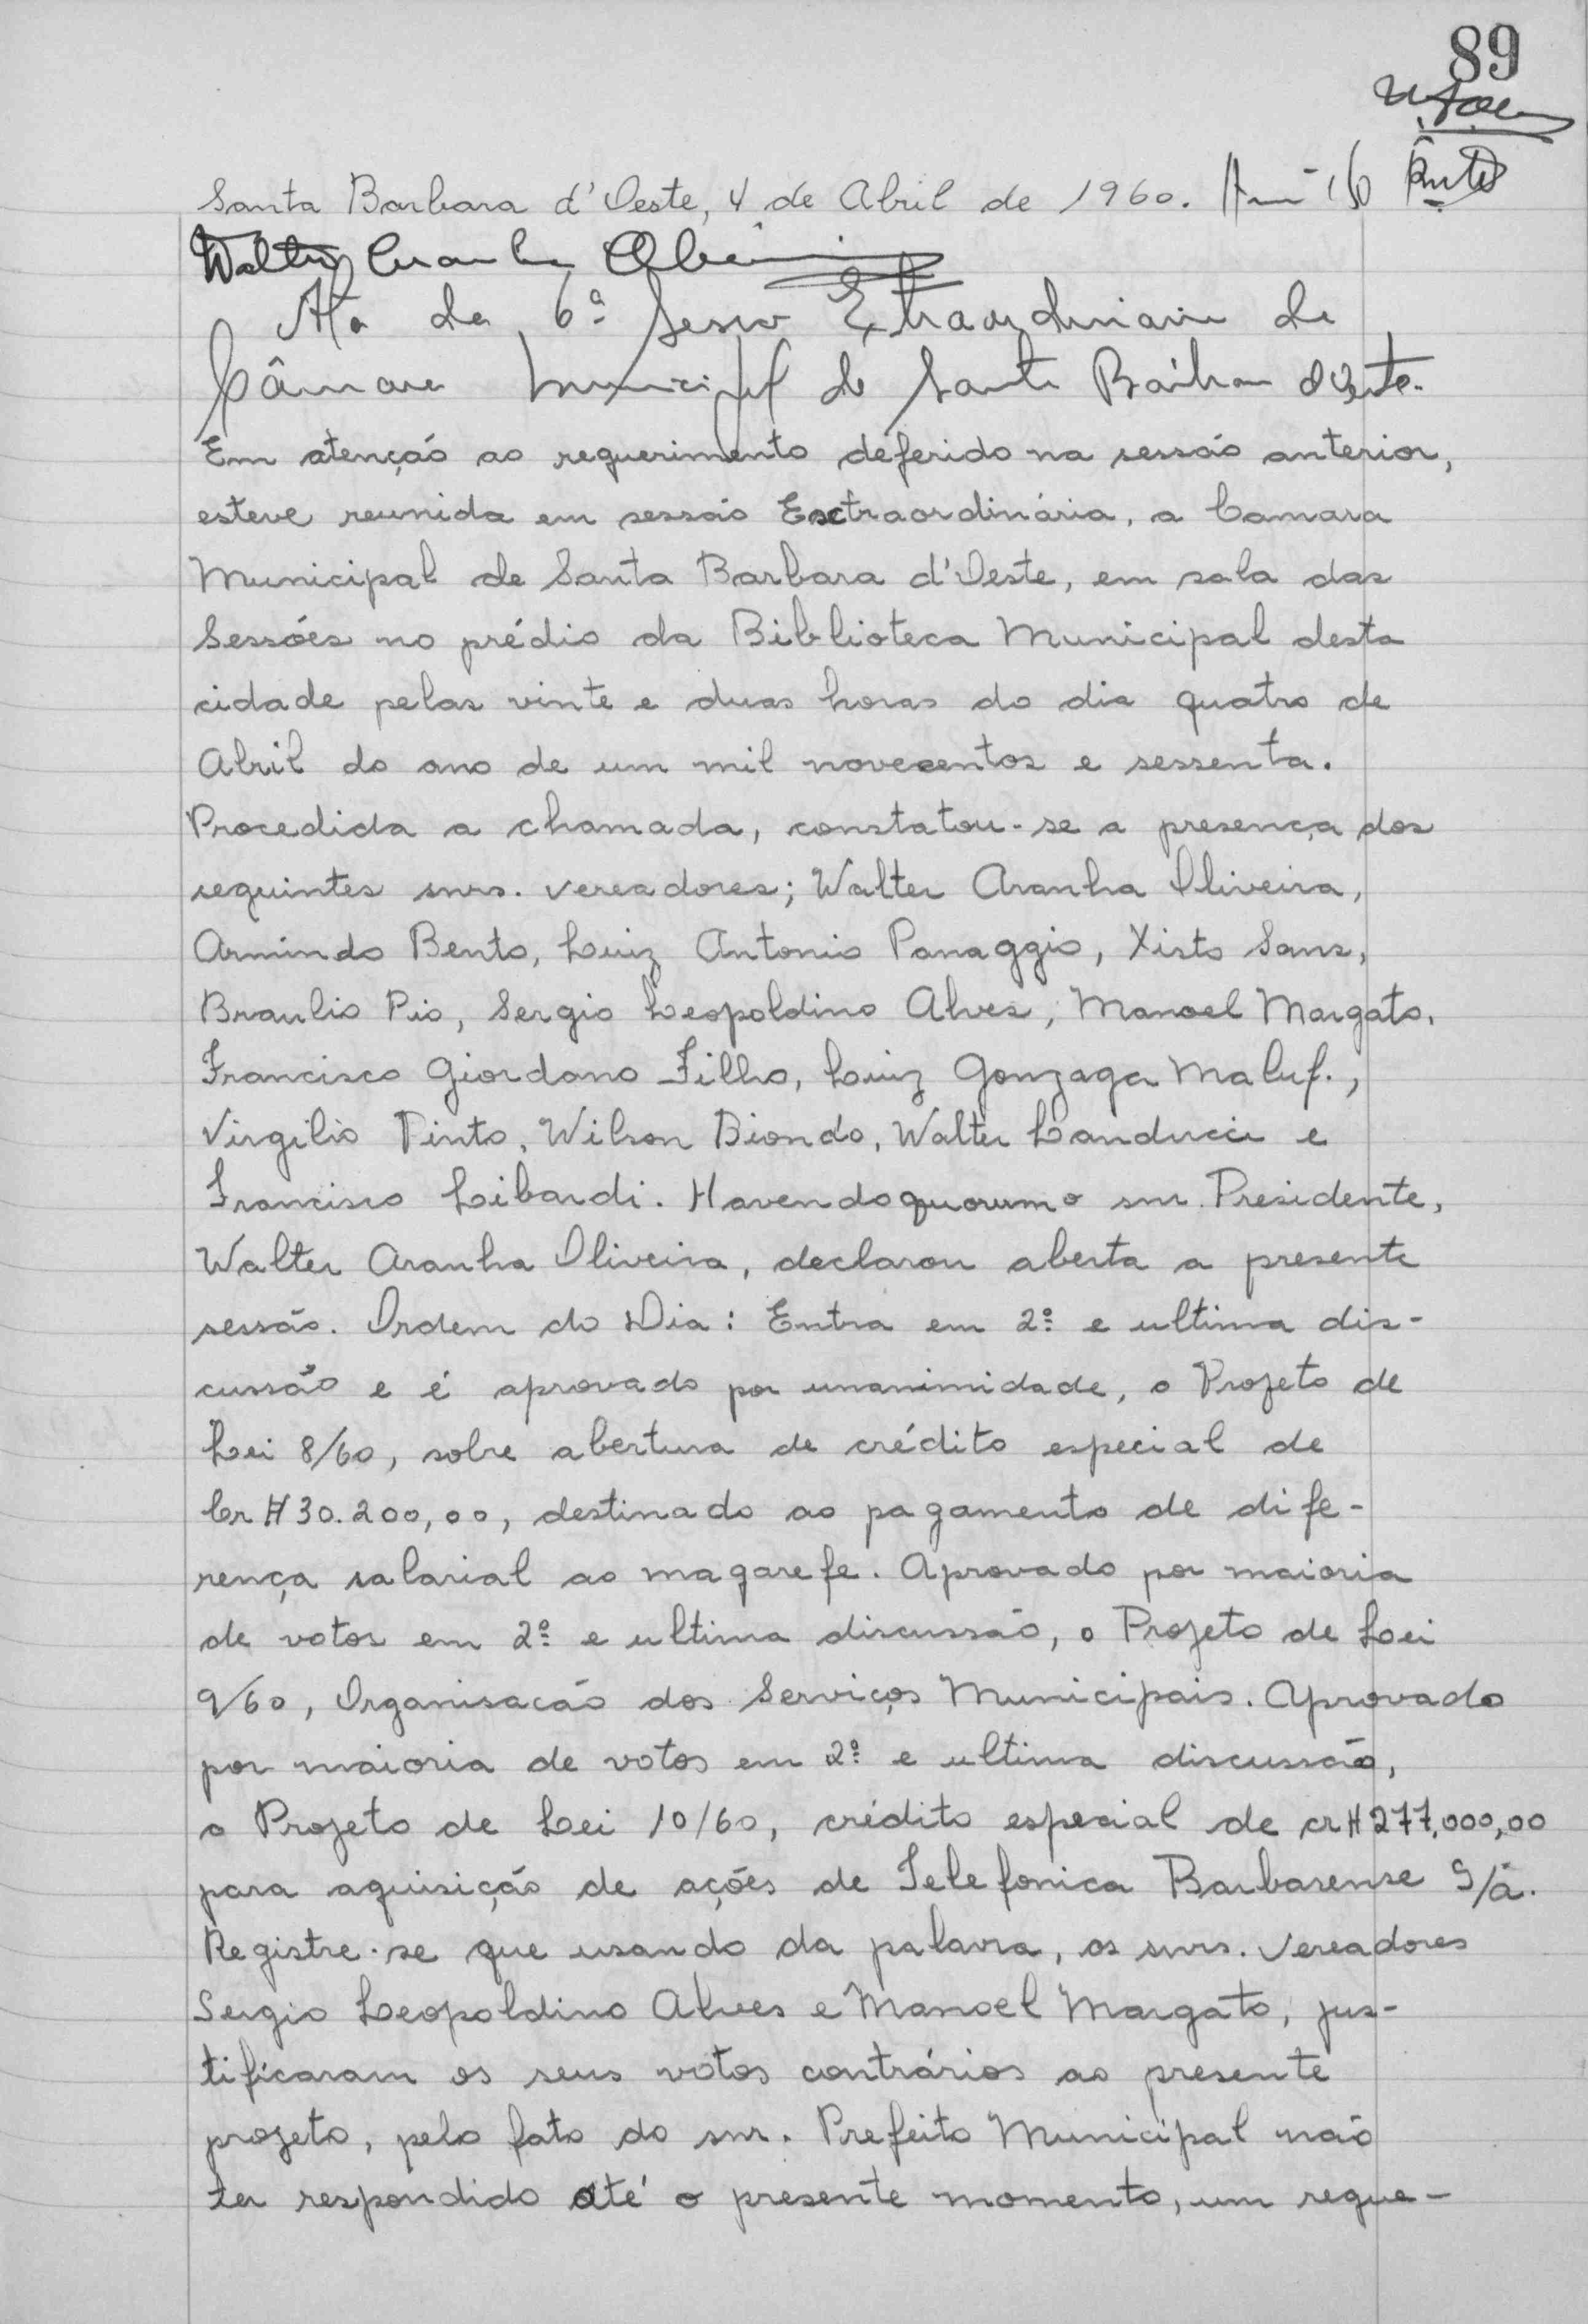 89
Santa Barbara d'Oeste, 4 de Abril de 1960.
Walter Aranha Oliveira
Ata da 6ª Sessão Extraordinaria da
Câmara Municipal de Santa Bárbara d'Oeste.
Em atenção ao requerimento deferido na sessão anterior,
esteve reunida em sessão Extraordinária, a Camara
Municipal de Santa Barbara d'Oeste, em sala das
Sessões no prédio da Biblioteca Municipal desta
cidade pelas vinte e duas horas do dia quatro de
Abril do ano de um mil novecentos e sessenta.
Procedida a chamada, constatou-se a presença dos
seguintes snrs. vereadores; Walter Aranha Oliveira,
Armindo Bento, Luiz Antonio Panaggio, Xisto Sans,
Braulio Pio, Sergio Leopoldino Alves, Manoel Margato,
Francisco Giordano Filho, Luiz Gonzaga Maluf.,
Virgilio Pinto, Wilson Biondo, Walter Landucci e
Francisco Libardi. Havendo quorum o snr. Presidente,
Walter Aranha Oliveira, declarou aberta a presente
sessão. Ordem do Dia: Entra em 2ª e ultima dis-
cussão e é aprovado por unanimidade, o Projeto de
Lei 8/60, sobre abertura de crédito especial de
Cr$ 30.200,00, destinado ao pagamento de dife-
rença salarial ao magarefe. Aprovado por maioria
de votos em 2ª e ultima discussão, o Projeto de Lei
9/60, Organisacão dos Serviços Municipais. Aprovado
por maioria de votos em 2ª e ultima discussão,
o Projeto de Lei 10/60, crédito especial de cr$ 277.000,00
para aquisição de ações de Telefonica Barbarense S/a.
Registre-se que usando da palavra, os snrs. Vereadores
Sergio Leopoldino Alves e Manoel Margato, jus-
tificaram os seus votos contrários ao presente
projeto, pelo fato do snr. Prefeito Municipal não
ter respondido até o presente momento, um reque-